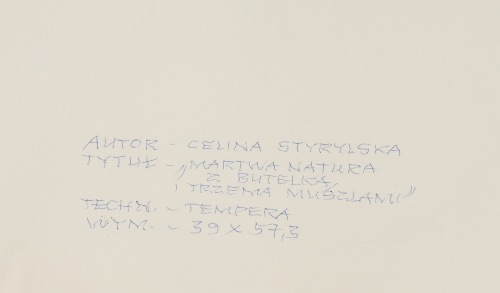 AUTOR - CELINA STYRYLSKA
TYTUŁ - „MARTWA NATURA
Z BUTELKĄ
I TRZEMA MUSZLAMI"
TECHN. - TEMPERA
WYM. - 39 X 57,3